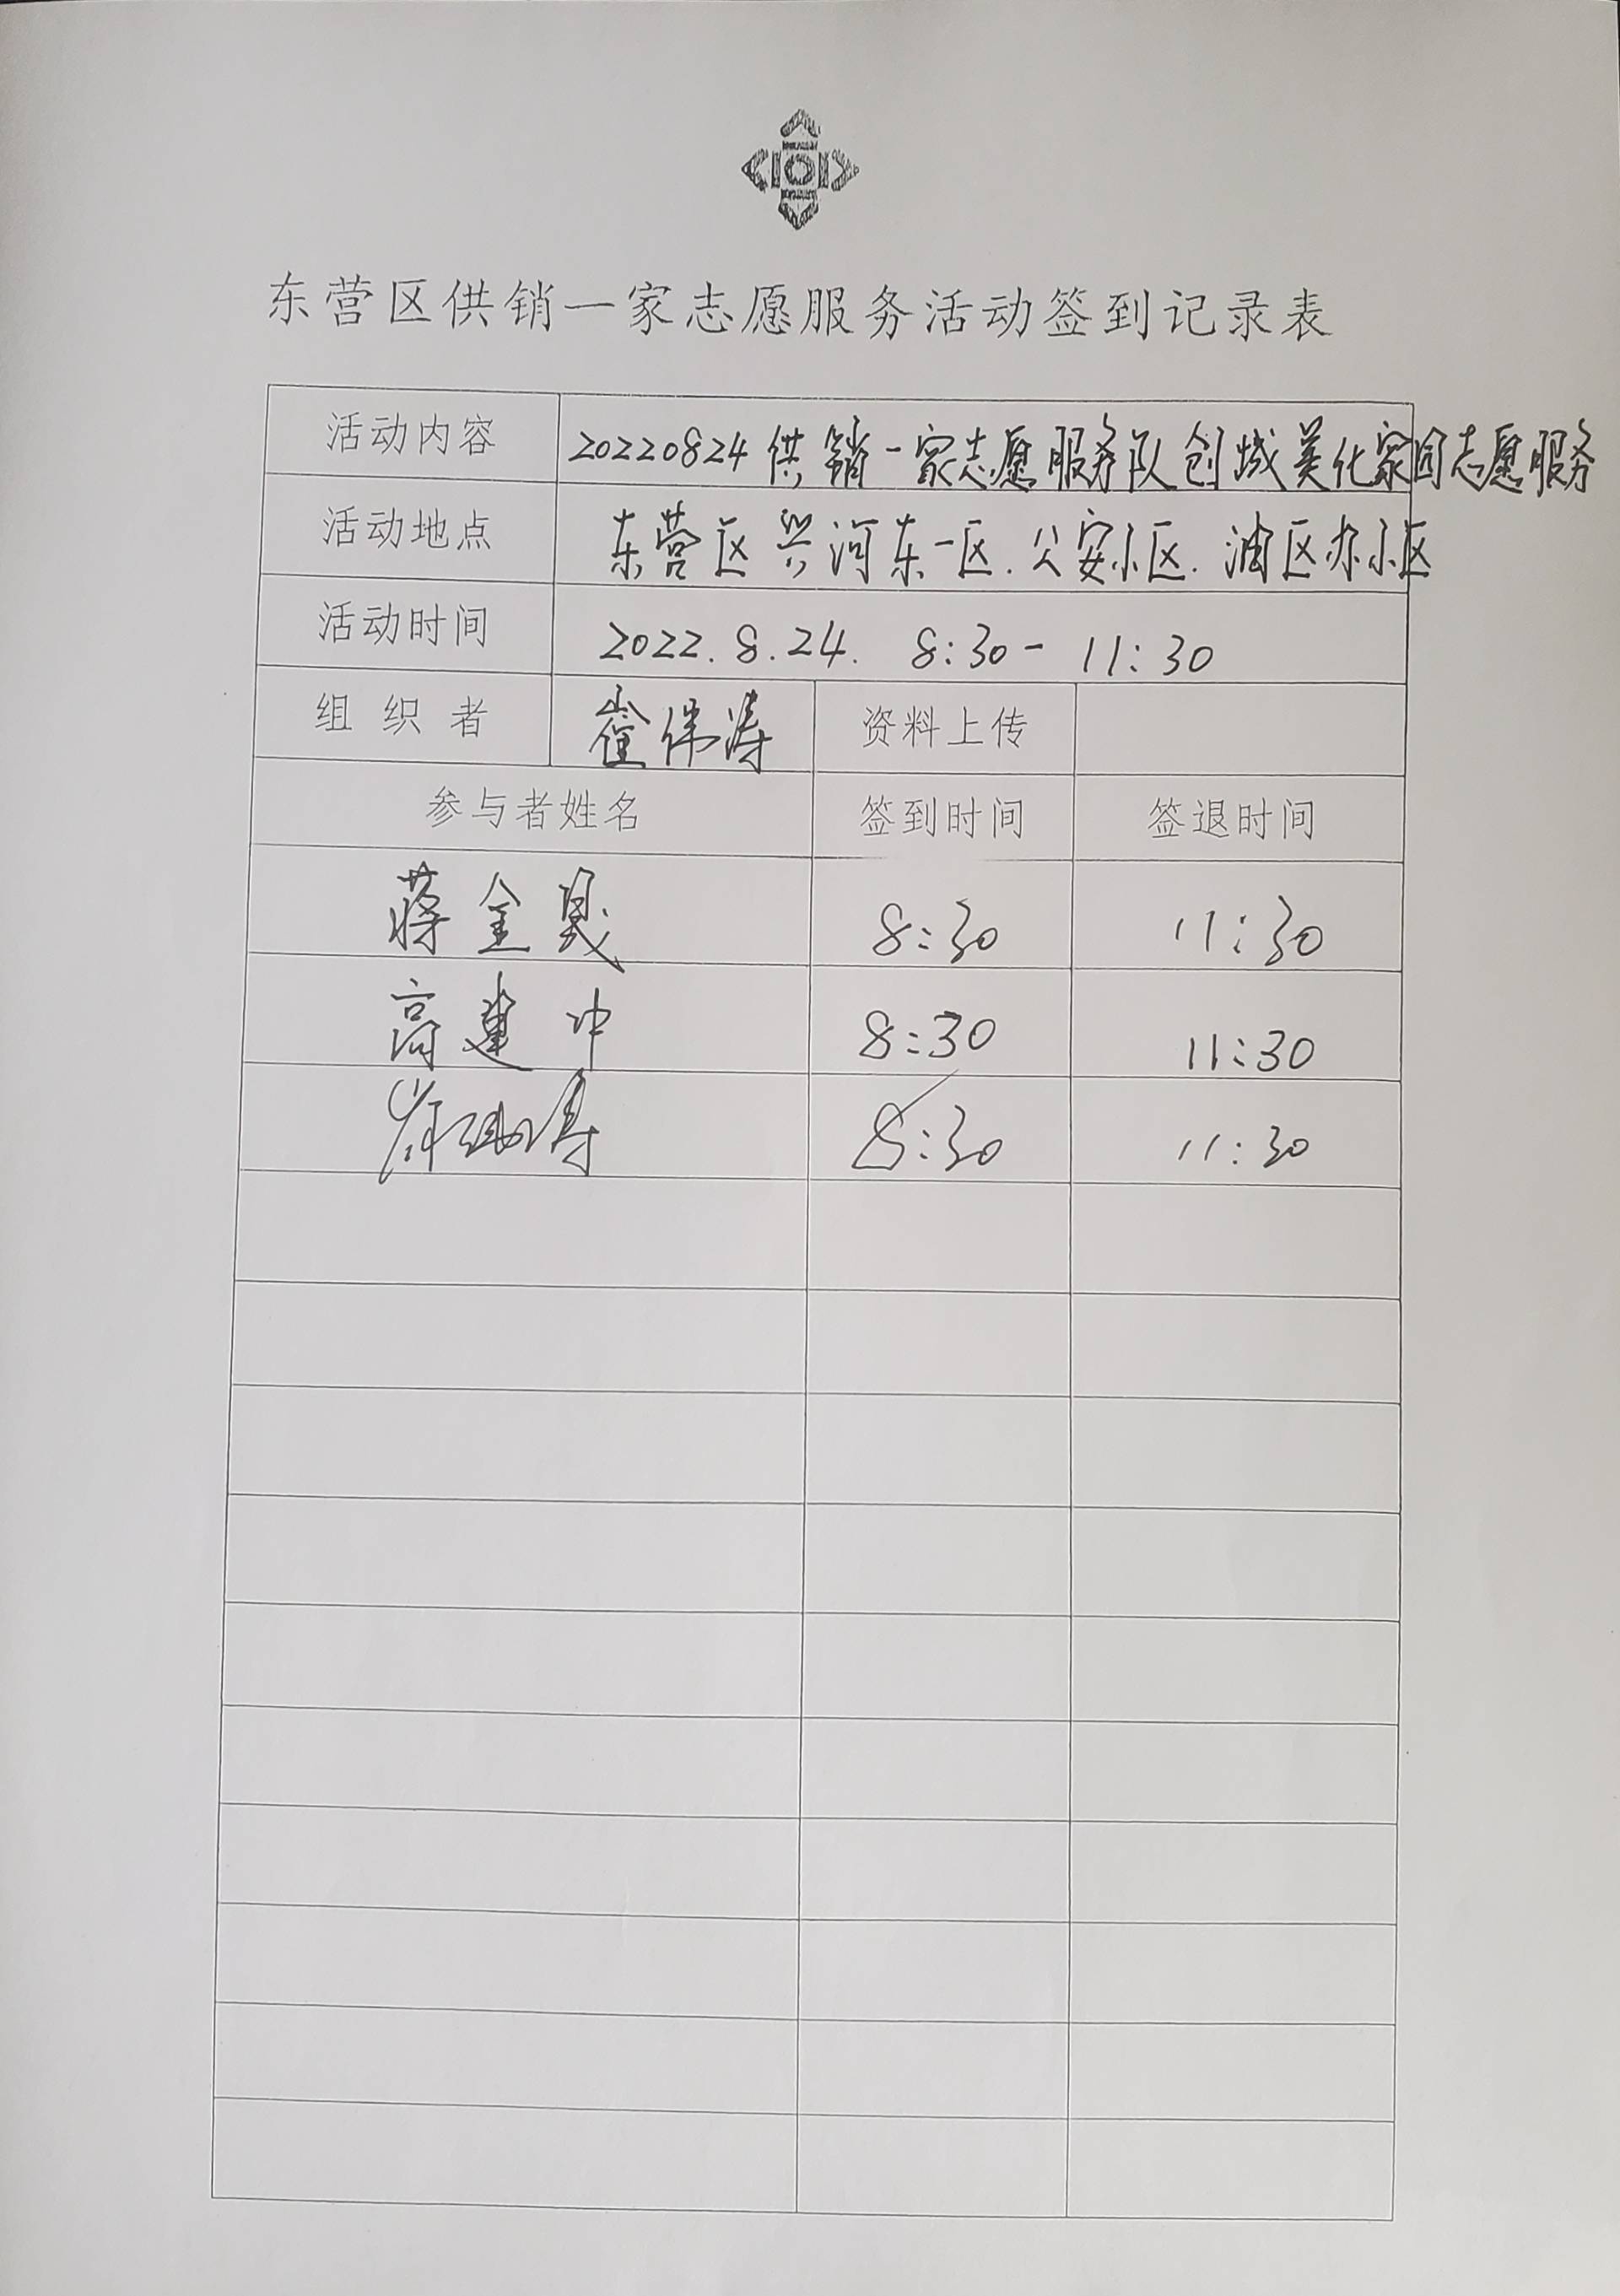 东营区供销一家志愿服务活动签到记录表
活动内容 20220824供销一家志愿服务队创城美化家园志愿服务
活动地点 东营区兴河东一区.公安小区.油区办小区
活动时间 2022.8.24. 8:30-11:30
组织者 崔保涛 资料上传
参与者姓名 签到时间 签退时间
蒋金晟 8:30 11:30
高建冲 8:30 11:30
8:30 11:30